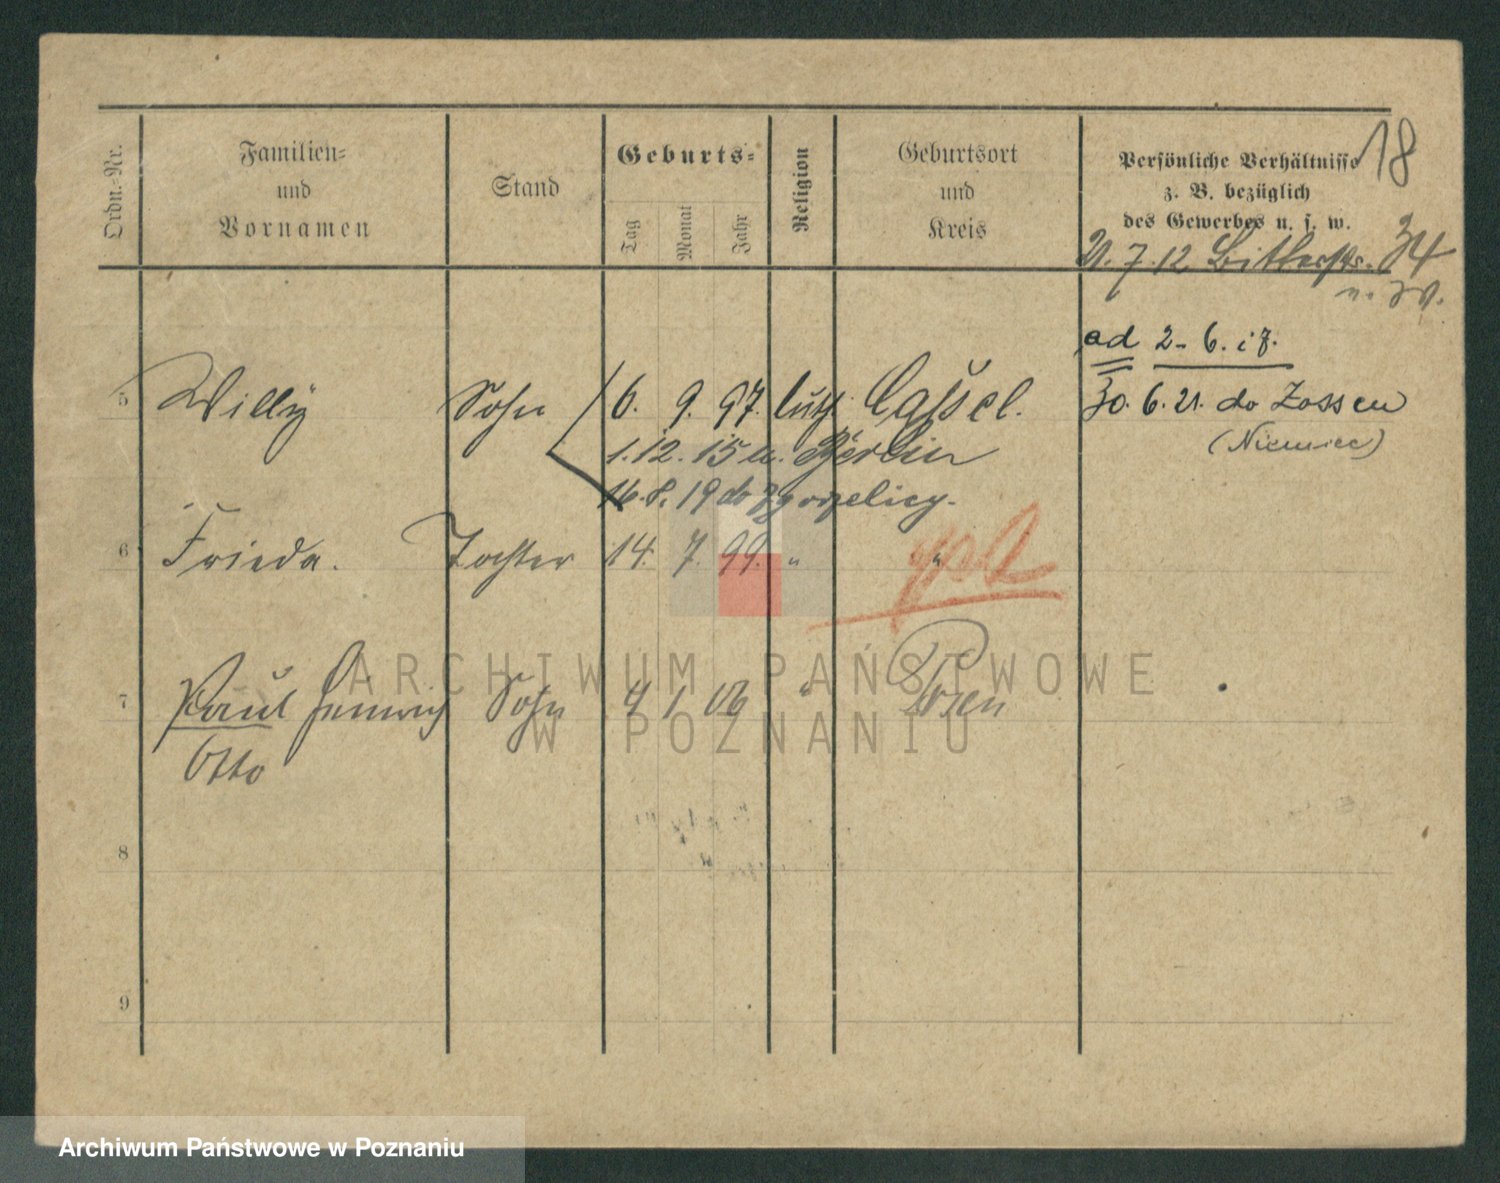 18
Ordn.-Nr.
Familien-
und
Vornamen
Stand
Geburts-
Tag
Monat
Jahr
Religion
Geburtsort
und
Kreis
Persönliche Verhältnisse
z. B. bezüglich
des Gewerbes u. s. w.
21. 7. 12 34
ad 2-6. i 7.
5 Willy Sohn 6. 9. 97. luth. Cassel. 30. 6. 21. do Zossen
(Niemiec)
1. 12. 15 n. Berlin
16. 8. 19 do Zgorzelicy.
6 Frieda. Tochter 14. 7. 99. " "
7 Paul Heinrich Sohn 4 1 06 " Posen
Otto
8
9
ARCHIWUM PAŃSTWOWE
W POZNANIU
Archiwum Państwowe w Poznaniu